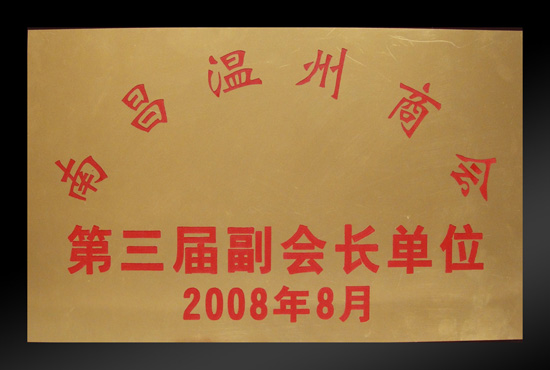 南昌温州商会
第三届副会长单位
2008年8月